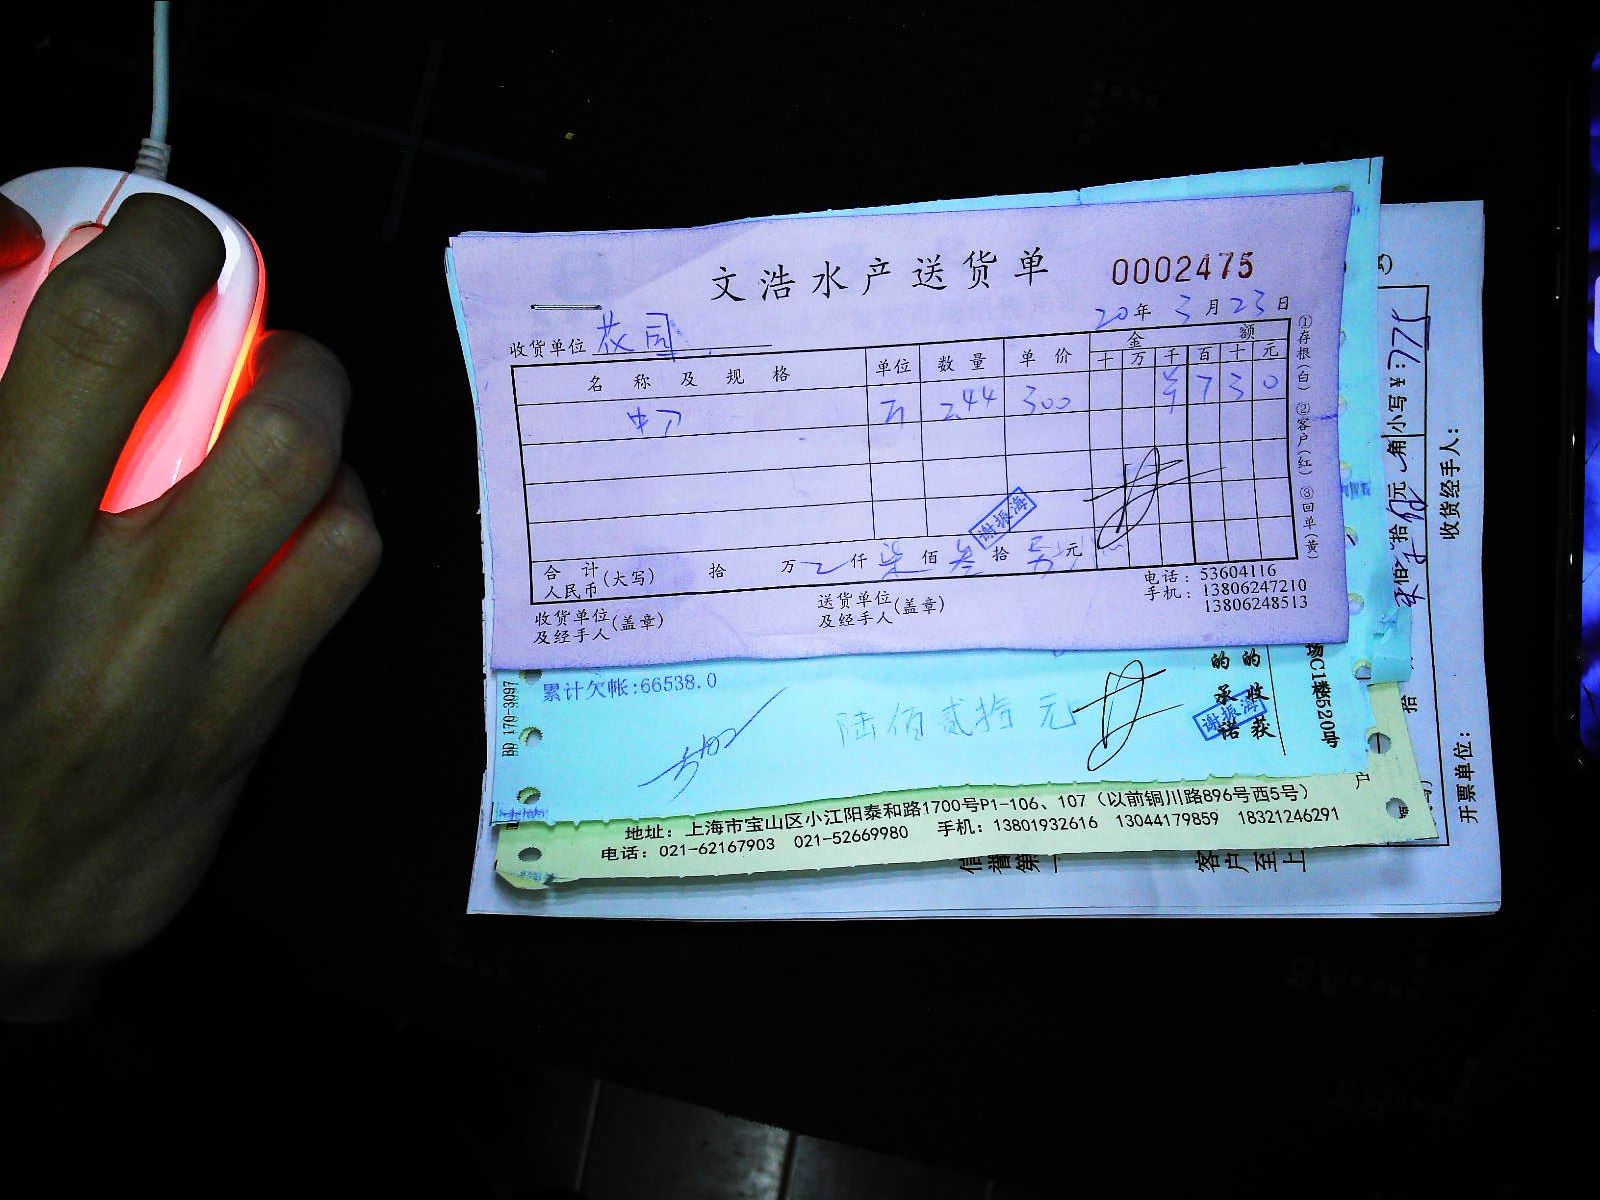 文浩水产送货单
0002475
20年3月23日
收货单位 花园
名称及规格 单位 数量 单价 金额
十 万 千 百 十 元
2.44 300 ¥ 7 3 0
谢振海
合计
人民币(大写) 拾 万 仟 柒 佰 叁 拾 元
收货单位
及经手人(盖章)
送货单位
及经手人(盖章)
电话: 53604116
手机: 13806247210
13806248513
①存根(白) ②客户(红) ③回单(黄)
累计欠帐:66538.0
陆佰贰拾元
的 的
承 收
诺 获
谢振海
场C1楼520号
BD 170-3097
户
地址: 上海市宝山区小江阳泰和路1700号P1-106、107 (以前铜川路896号西5号)
电话: 021-62167903 021-52669980 手机: 13801932616 13044179859 18321246291
信誉第一
客户至上
佰 拾 元 角 小写¥: 775
拾
收货经手人:
开票单位: